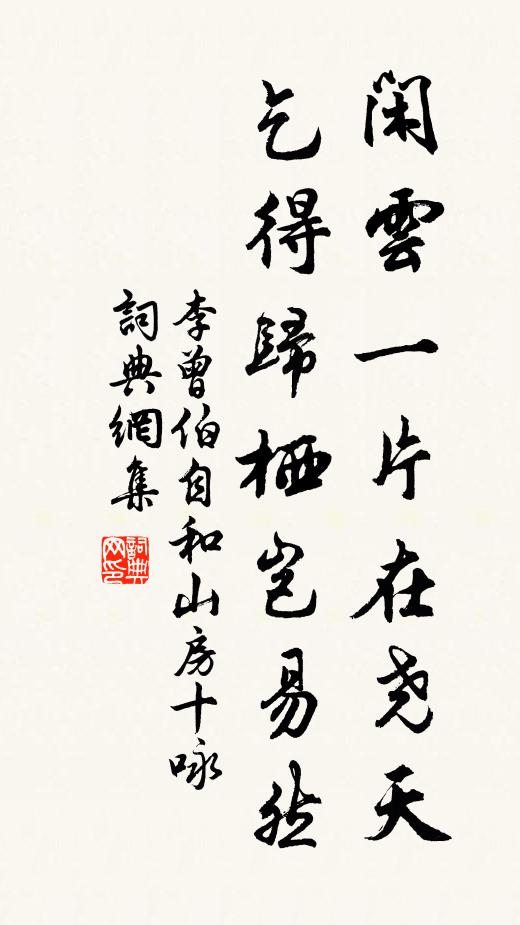 闲雲一片在尧天
乞得歸栖岂易然
李曾伯自和山房十咏
詞典網集
詞典網印